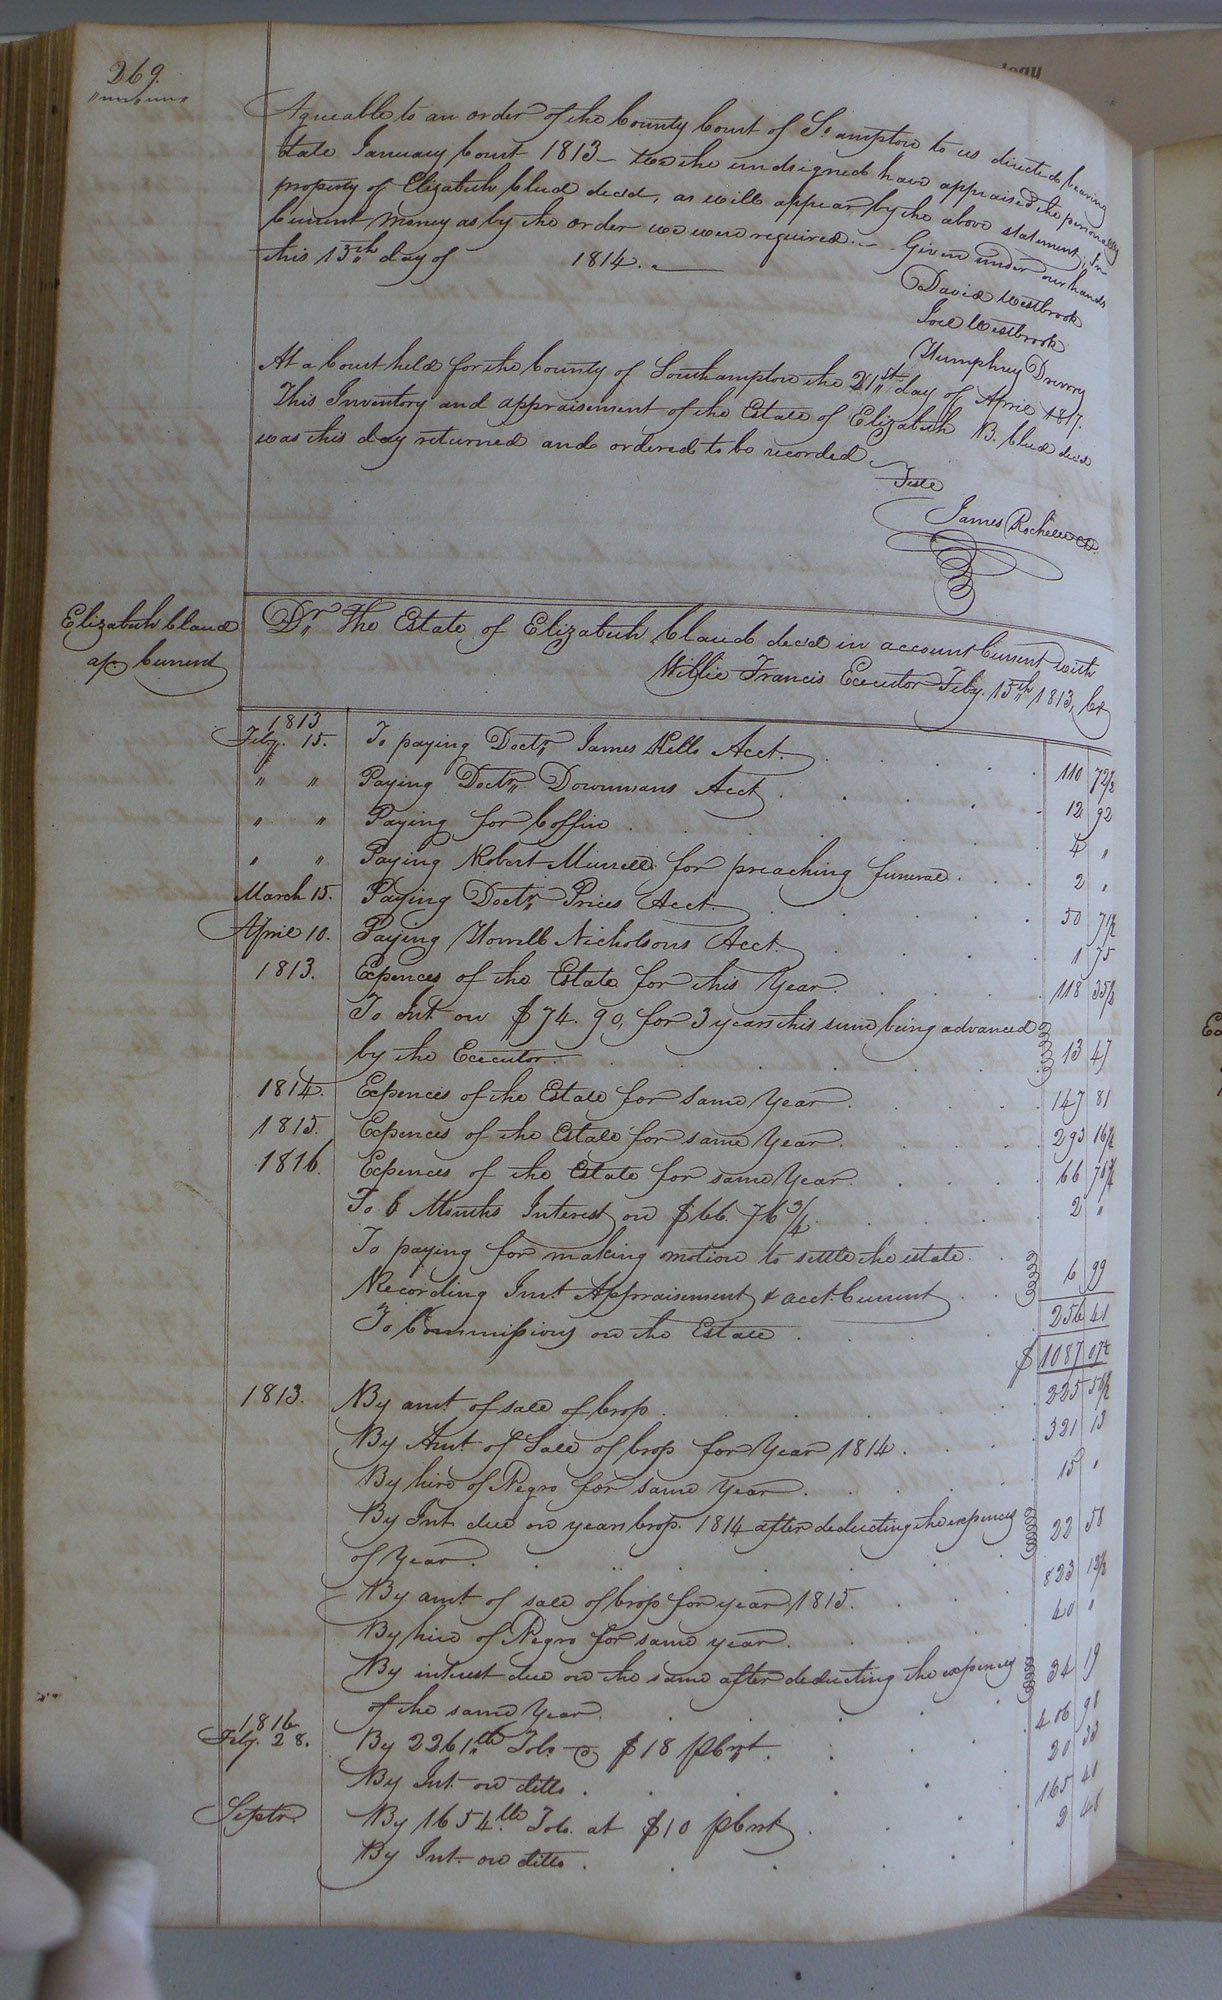 269.
Agreeable to an order of the County Court of So. ampton to us directed bearing
date January Court 1813 - We the undsigned have appraised the personally
property of Elizabeth Clud decd, as will appear by the above statement, In
Current money as by the order we were required. Given under our hands
this 13th day of 1814.
David Westbrook
Joel Westbrook
Humphrey Drewry
At a Court held for the County of Southampton the 21st day of April 1817.
This Inventory and appraisement of the Estate of Elizabeth B. Clud decd
was this day returned and ordered to be recorded
Teste
James Rochelle CC.
Elizabeth Claud
a/c Current
Dr. The Estate of Elizabeth Claud decd in account Current with
Willie Francis Executor Feby. 15th 1813, Cr
1813
Feby. 15. To paying Doctr. James Kells Acct. 110 72 1/2
" " Paying Doctr. Downmans Acct 12 92
" " Paying for Coffin 4 "
" " Paying Robert Murrell for preaching funeral 2 "
March 15. Paying Doctr. Prices Acct. 50 71 1/2
April 10. Paying Howell Nicholsons Acct. 1 75
1813. Expences of the Estate for this Year 118 35 1/2
To Int on $74. 90, for 3 years this sum being advanced
by the Executor. 13 47
1814. Expences of the Estate for same Year. 147 81
1815. Expences of the Estate for same Year. 293 16 1/2
1816. Expences of the Estate for same Year. 66 76 3/4
To 6 Months Interest on $66. 76 3/4 2 "
To paying for making motion to settle the estate
Recording Invt. Appraisement & acct. Current 6 99
To Commissions on the Estate 256 41
$ 1087 07
1813. By amt. of sale of Crop 225 56 1/2
By Amt of Sale of Crop for Year 1814. 321 13
By hire of Negro for same Year 15 "
By Int. due on years Crop. 1814 after deducting the expences
of Year. 22 58
By amt of sale of Crop for year 1815. 823 12 1/2
By hire of Negro for same year. 40 "
By interest due on the same after deducting the expences
of the same Year. 34 19
1816
Feby. 28. By 2261 lb Tob. @ $18 pCwt. 406 98
By Int. on ditto. 20 33
Septr. By 1654 lb Tob. at $10 pCwt 165 40
By Int. on ditto. 2 48